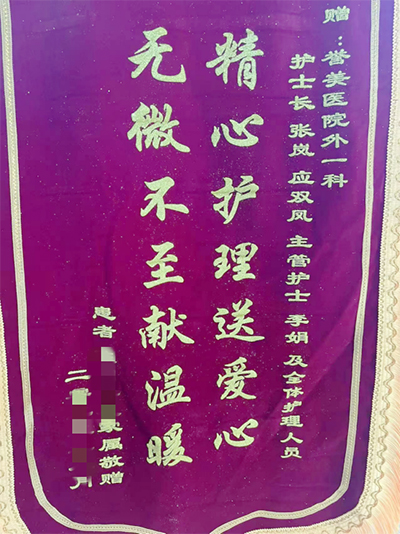 赠：誉美医院外一科
护士长 张岚 应双凤 主管护士 李娟 及全体护理人员
精心护理送爱心
无微不至献温暖
患者 家属敬赠
二 月